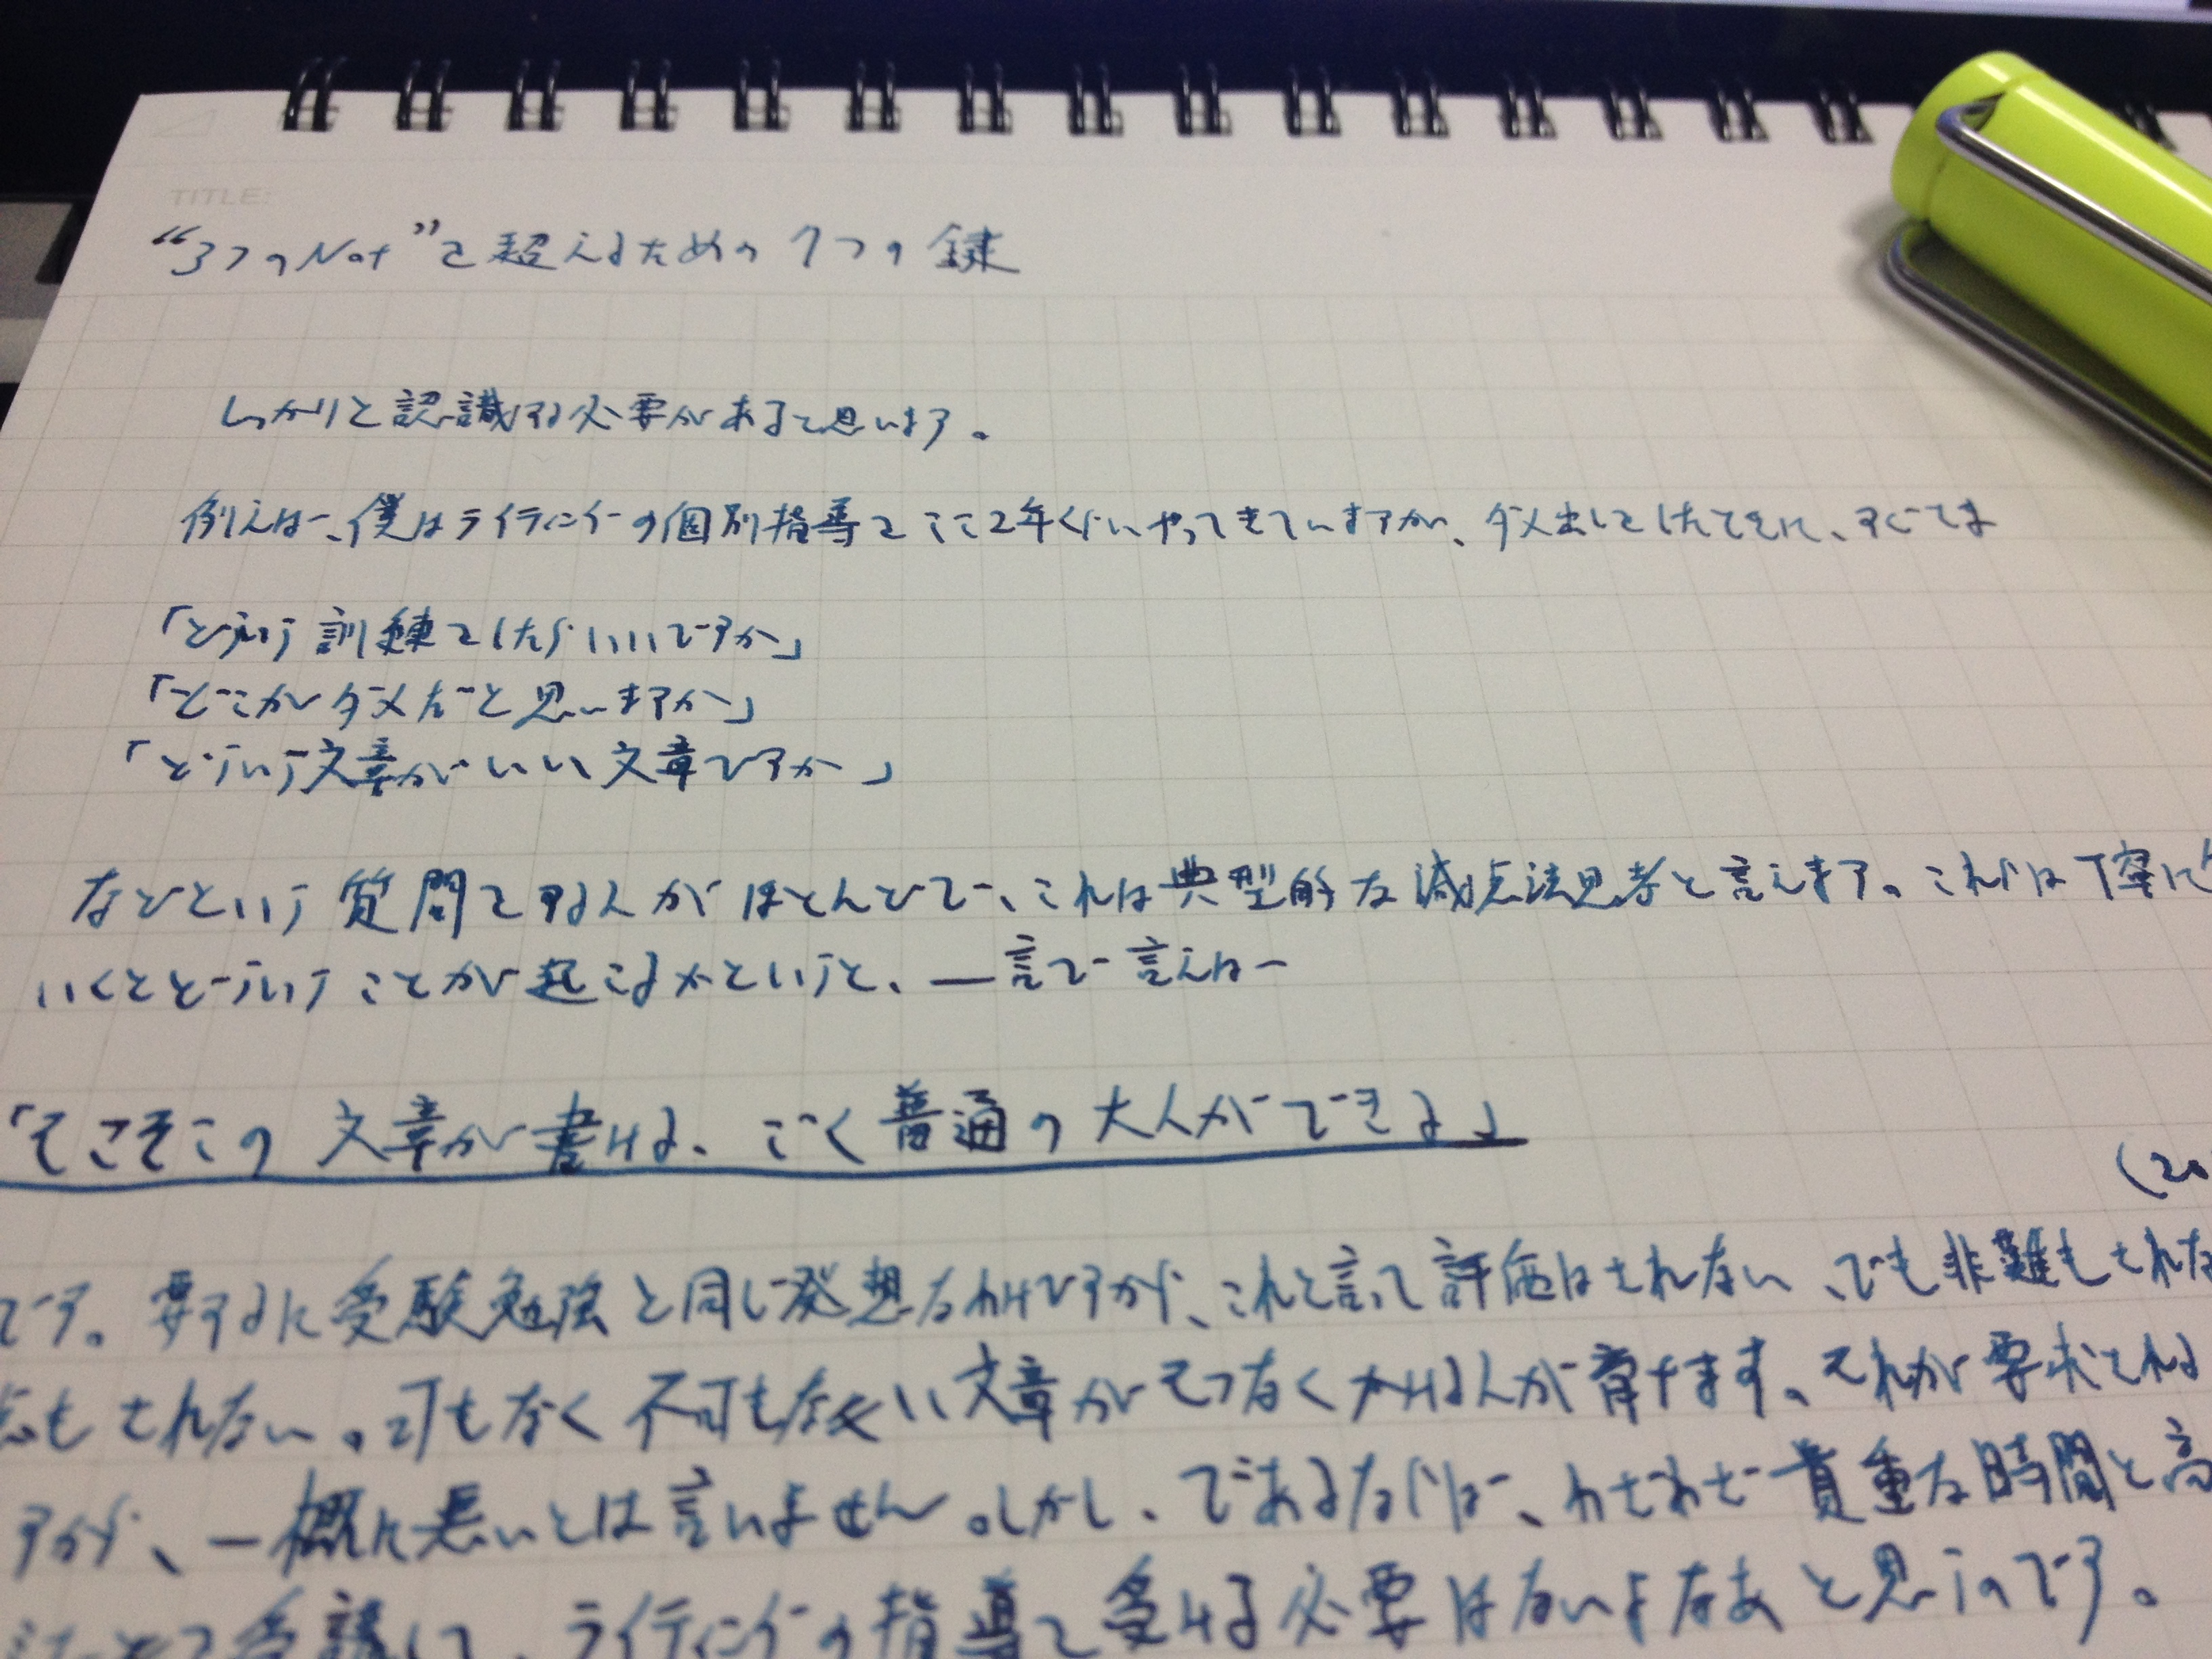 TITLE:
“3つのNot”を超えるための7つの鍵
しっかりと認識する必要があると思います。
例えば、僕はライティングの個別指導をここ2年くらいやってきていますが、ダメ出しをしたときに、すぐさま
「どういう訓練をしたらいいですか」
「どこがダメだと思いますか」
「どういう文章がいい文章ですか」
などという質問をする人がほとんどで、これは典型的な減点法思考と言えます。これらは丁寧に
いくとどういうことが起こるかというと、一言で言えば
「そこそこの文章が書ける、ごく普通の大人ができる」
(20
です。要するに受験勉強と同じ発想なわけですが、これと言って評価はされない、でも非難もされな
もされない。可もなく不可もない文章がそつなくかける人が育ちます。それが要求される
すが、一概に悪いとは言いません。しかし、であるならば、わざわざ貴重な時間と高
受講して、ライティングの指導を受ける必要はないよなあと思うのです。